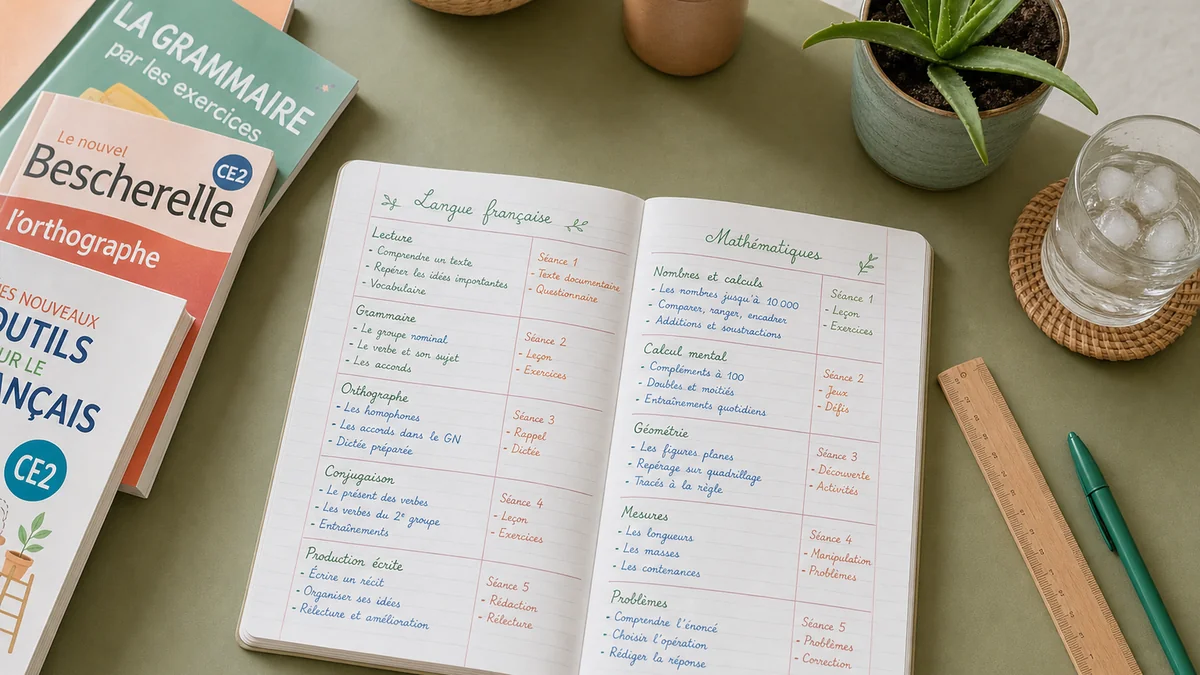 LA GRAMMAIRE
par les exercices
Le nouvel
Bescherelle
CE2
l'orthographe
NOUVEAUX
OUTILS
LE
CE2
Langue française
Lecture
- Comprendre un texte
- Repérer les idées importantes
- Vocabulaire
Séance 1
- Texte documentaire
- Questionnaire
Grammaire
- Le groupe nominal
- Le verbe et son sujet
- Les accords
Séance 2
- Leçon
- Exercices
Orthographe
- Les homophones
- Les accords dans le GN
- Dictée préparée
Séance 3
- Rappel
- Dictée
Conjugaison
- Le présent des verbes
- Les verbes du 2e groupe
- Entraînements
Séance 4
- Leçon
- Exercices
Production écrite
- Écrire un récit
- Organiser ses idées
- Rélecture et amélioration
Séance 5
- Rédaction
- Rélecture
Mathématiques
Nombres et calculs
- Les nombres jusqu'à 10 000
- Comparer, ranger, encadrer
- Additions et soustractions
Séance 1
- Leçon
- Exercices
Calcul mental
- Compléments à 100
- Doubles et moitiés
- Entraînements quotidiens
Séance 2
- Jeux
- Défis
Géométrie
- Les figures planes
- Repérage sur quadrillage
- Tracés à la règle
Séance 3
- Découverte
- Activités
Mesures
- Les longueurs
- Les masses
- Les contenances
Séance 4
- Manipulation
- Problèmes
Problèmes
- Comprendre l'énoncé
- Choisir l'opération
- Rédiger la réponse
Séance 5
- Problèmes
- Correction